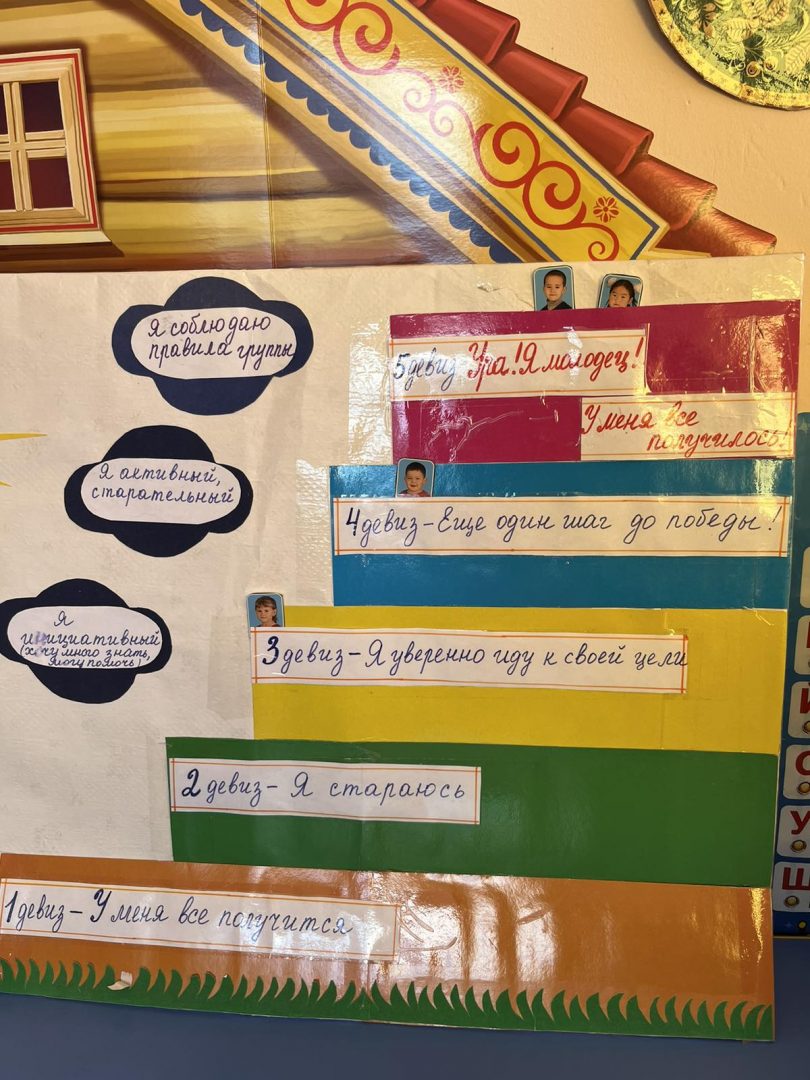 Я соблюдаю
правила группы
Я активный,
старательный
Я
инициативный
(хочу много знать,
могу помочь)
5 девиз Ура! Я молодец!
У меня все
получилось!
4 девиз – Еще один шаг до победы!
3 девиз – Я уверенно иду к своей цели
2 девиз – Я стараюсь
1 девиз – У меня все получится
С
У